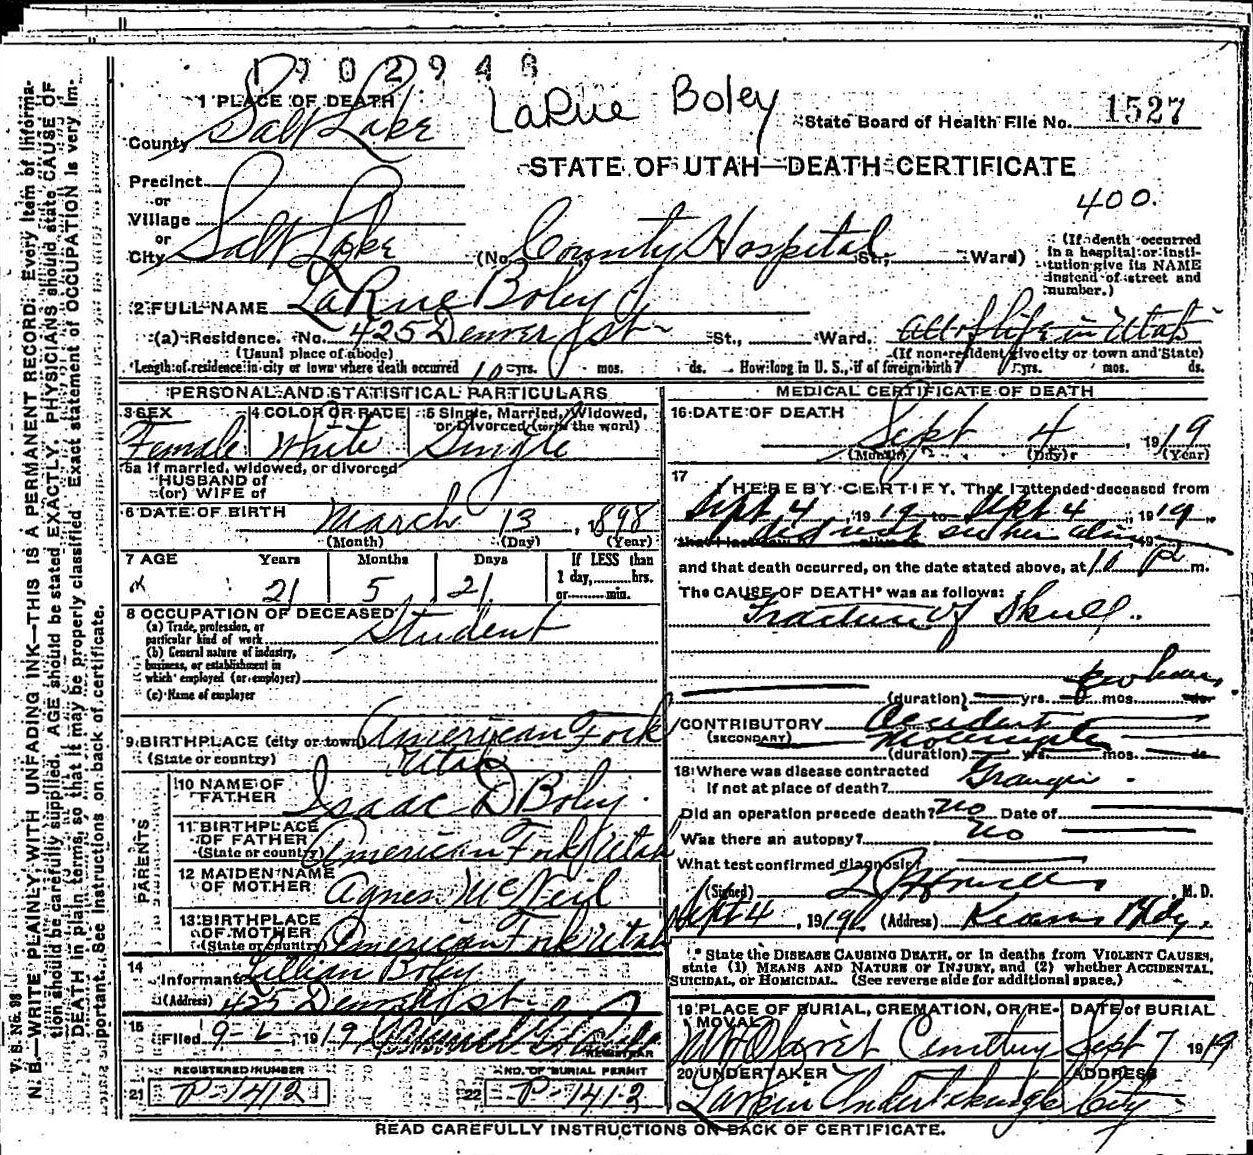 1902948
LaRue Boley
1 PLACE OF DEATH
County Salt Lake
State Board of Health File No. 1527
STATE OF UTAH—DEATH CERTIFICATE
Precinct
or
Village
or
City Salt Lake (No. County Hospital St.; Ward)
400.
(If death occurred in a hospital or insti-
tution give its NAME
instead of street and
number.)
2 FULL NAME LaRue Boley
(a) Residence. No. 425 Denver st St., Ward. all of life in Utah
(Usual place of abode) (If non-resident give city or town and State)
Length of residence in city or town where death occurred 10 yrs. mos. ds. How long in U. S., if of foreign birth? yrs. mos. ds.
PERSONAL AND STATISTICAL PARTICULARS
3 SEX Female
4 COLOR OR RACE White
5 Single, Married, Widowed, or Divorced (write the word) Single
5a If married, widowed, or divorced
HUSBAND of
(or) WIFE of
6 DATE OF BIRTH March 13, 1898
(Month) (Day) (Year)
7 AGE Years Months Days If LESS than
1 day, hrs.
or min.
21 5 21
8 OCCUPATION OF DECEASED
(a) Trade, profession, or
particular kind of work Student
(b) General nature of industry,
business, or establishment in
which employed (or employer)
(c) Name of employer
9 BIRTHPLACE (city or town) American Fork
(State or country) Utah
PARENTS
10 NAME OF FATHER Isaac D Boley
11 BIRTHPLACE OF FATHER (State or country) American Fork Utah
12 MAIDEN NAME OF MOTHER Agnes McNeil
13 BIRTHPLACE OF MOTHER (State or country) American Fork Utah
14 Informant Lillian Boley
(Address) 425 Denver st
15 Filed 9-6, 1919
REGISTRAR
REGISTERED NUMBER
21 P-1412
NO. OF BURIAL PERMIT
22 P-1412
MEDICAL CERTIFICATE OF DEATH
16 DATE OF DEATH
Sept 4, 1919
(Month) (Day) (Year)
17 I HEREBY CERTIFY, That I attended deceased from
Sept 4 1919 to Sept 4, 1919,
that I last saw I did not see her alive
and that death occurred, on the date stated above, at 10 P m.
The CAUSE OF DEATH* was as follows:
Fracture of Skull.
few hours
(duration) yrs. mos. ds.
CONTRIBUTORY Accident
(SECONDARY)
(duration) yrs. mos. ds.
18 Where was disease contracted
If not at place of death? Granger
Did an operation precede death? no Date of
Was there an autopsy? no
What test confirmed diagnosis?
(Signed) M. D.
Sept 4, 1919 (Address) Kearns Bldg.
* State the DISEASE CAUSING DEATH, or in deaths from VIOLENT CAUSES,
state (1) MEANS AND NATURE OF INJURY, and (2) whether ACCIDENTAL,
SUICIDAL, or HOMICIDAL. (See reverse side for additional space.)
19 PLACE OF BURIAL, CREMATION, OR RE-
MOVAL Mt Olivet Cemetery
DATE of BURIAL
Sept 7 1919
20 UNDERTAKER ADDRESS
Larkin Undertaking Co City
READ CAREFULLY INSTRUCTIONS ON BACK OF CERTIFICATE.
V. S. No. 98
N. B.—WRITE PLAINLY WITH UNFADING INK—THIS IS A PERMANENT RECORD. Every item of informa-
tion should be carefully supplied. AGE should be stated EXACTLY. PHYSICIANS should state CAUSE OF
DEATH in plain terms, so that it may be properly classified. Exact statement of OCCUPATION is very im-
portant. See instructions on back of certificate.